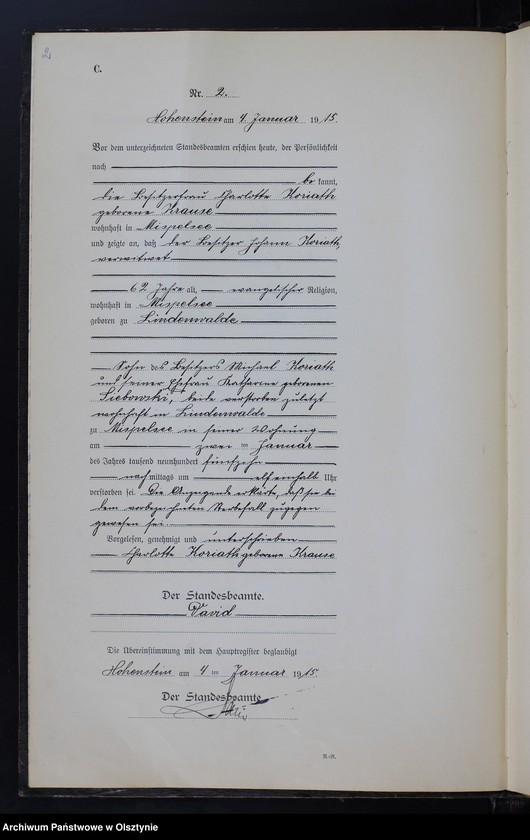 2
C.
Nr. 2.
Hohenstein am 4 Januar 1915.
Vor dem unterzeichneten Standesbeamten erschien heute, der Persönlichkeit
nach
be kannt,
die Besitzerfrau Charlotte Koriath
geborene Krause
wohnhaft in Mispelsee
und zeigte an, daß der Besitzer Johann Koriath,
verwitwet
62 Jahre alt, evangelischer Religion,
wohnhaft in Mispelsee
geboren zu Lindenwalde
Sohn des Besitzers Michael Koriath
und seiner Ehefrau Katharine geborenen
Siebowski, beide verstorben zuletzt
wohnhaft in Lindenwalde
zu Mispelsee in seiner Wohnung
am zwei ten Januar
des Jahres tausend neunhundert fünfzehn
nach mittags um elf einhalb Uhr
verstorben sei. Die Anzeigende erklärte, daß sie bei
dem vorbezeichneten Sterbefall zugegen
gewesen sei.
Vorgelesen, genehmigt und unterschrieben
Charlotte Koriath geborene Krause
Der Standesbeamte.
David
Die Übereinstimmung mit dem Hauptregister beglaubigt
Hohenstein am 4 ten Januar 1915.
Der Standesbeamte
Archiwum Państwowe w Olsztynie